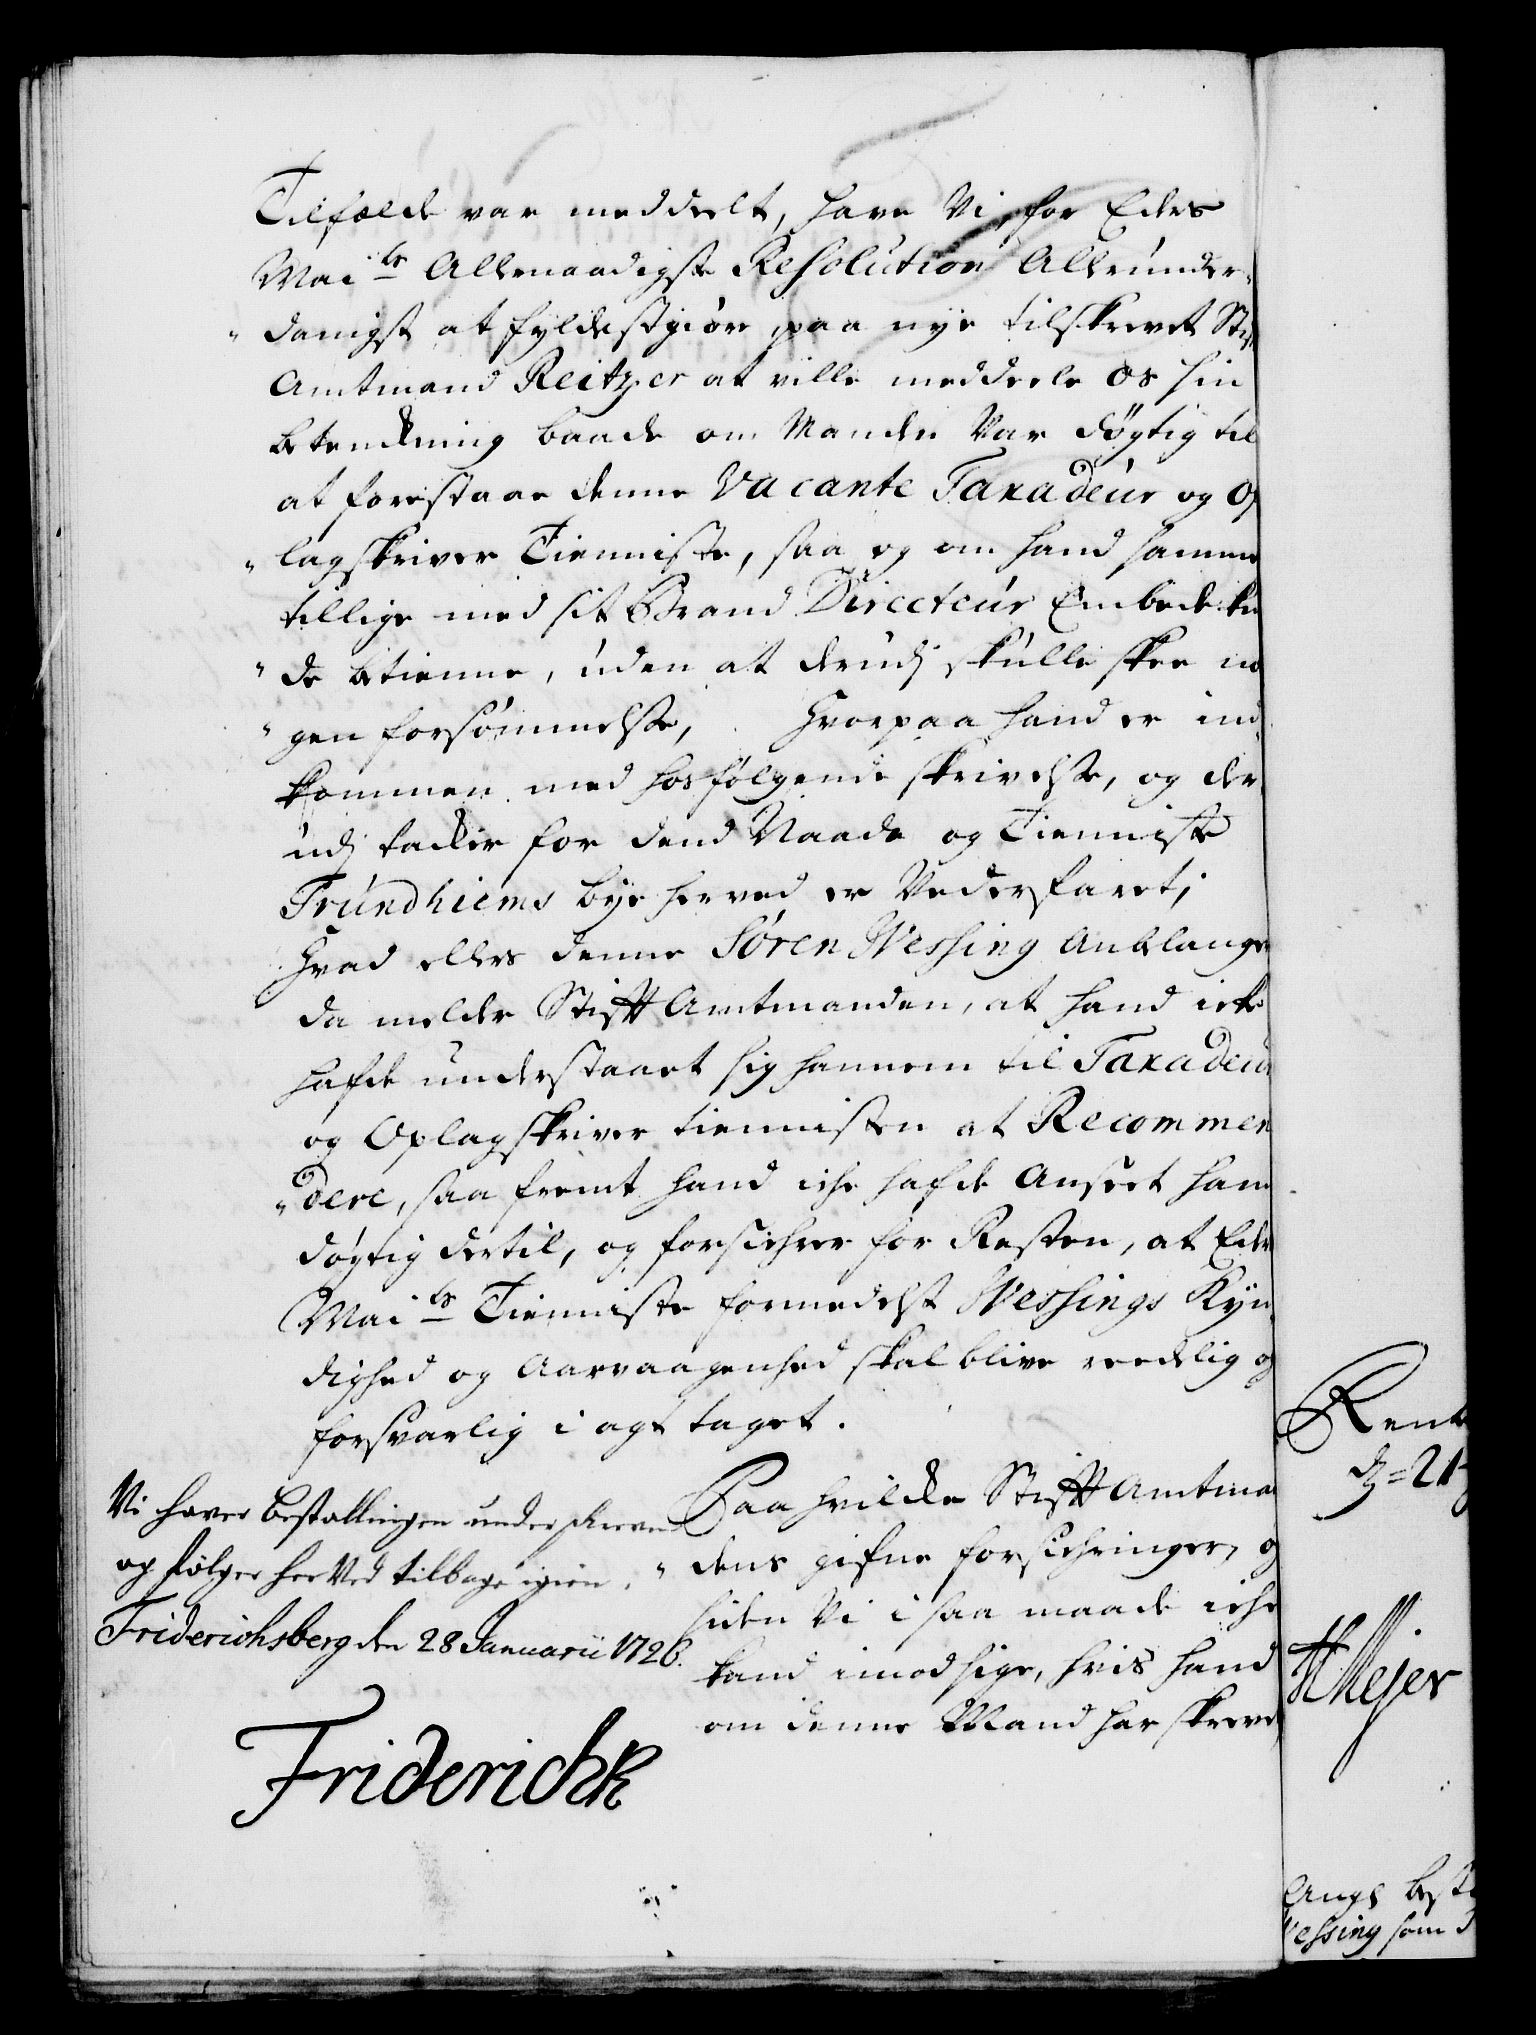 Tilfælde var meddeelt, have Vi, for Eders
Mai<sup>ts</sup> Allernaadigste Resolution Allerunder-
„danigst at fyldestgiøre, paa nye tilskrevet Stift
Amtmand Reitzer at ville meddeele os sin
betenckning baade om Manden Var døgtig til
at forestaae denne Vacante Taxadeur og Op
„lagskriver Tienniste, saa og om hand samme
tillige med sit Brand Directeur Embede kun
„de betienne, uden at derudj skulle skee no
„gen forsømmelse, Hvorpaa hand er ind-
kommen med hosfølgende skrivelse, og der
udj tacker for dend Naade og Tienniste
Trundhiems bye herved er Vederfaret;
Hvad ellers denne Søren Wessing Anblanger
da melder Stifft Amtmanden, at hand icke
hafde understaaet sig hannem til Taxadeur
og Oplagskriver tiennisten at Recommen
„dere, saa fremt hand iche hafde Anseet ham
døgtig dertil, og forsichrer for Resten, at Eders
Mai<sup>ts</sup> Tienniste formedelst Wessings Kyn-
dighed og Aarvaagenhed skal blive reedelig og
forsvarlig i agt taget.
Paa hvilcke Stifft Amtman
„dens gifne forsichringer, og
siden Vi i saa maade iche
kand imodsige, hvis hand
om denne Mand har skrevet,
Vi haver Bestallingen underskreven
og følger her Ved tilbage igien.
Friderichsberg den 28 Januarii 1726.
Friderich R
Rente
d. 21
H Mejer
Ang<sup>e</sup> best
Wessing som T